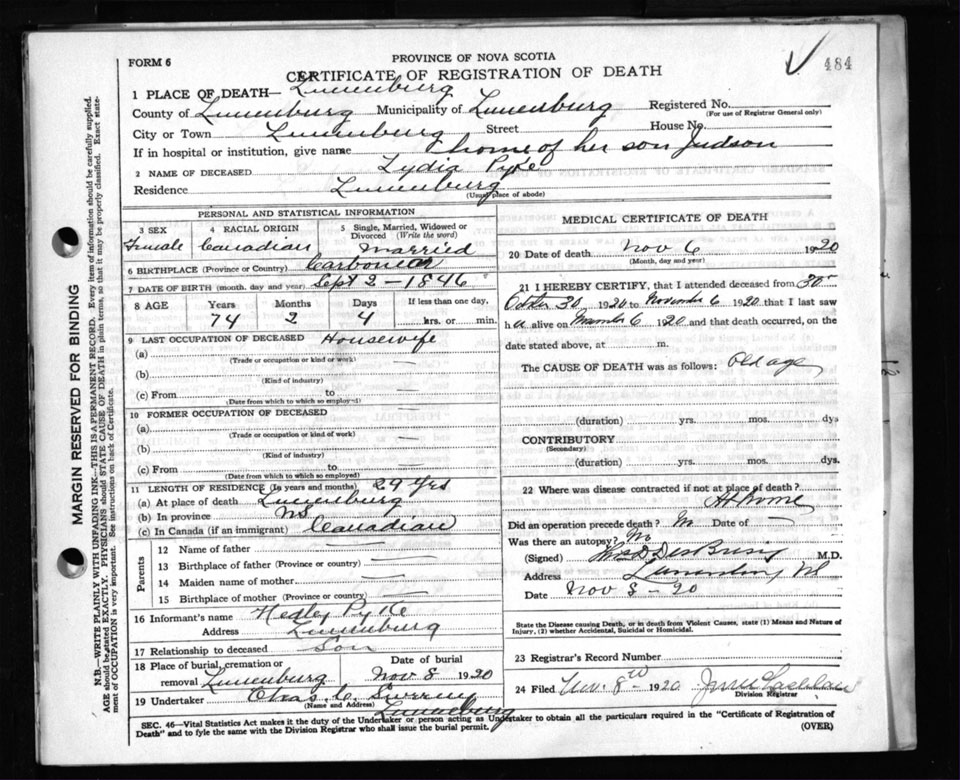 484
FORM 6
PROVINCE OF NOVA SCOTIA
CERTIFICATE OF REGISTRATION OF DEATH
1 PLACE OF DEATH— Lunenburg
County of Lunenburg Municipality of Lunenburg Registered No.
(For use of Registrar General only)
City or Town Lunenburg Street House No.
If in hospital or institution, give name home of her son Judson
2 NAME OF DECEASED Lydia Pyke
Residence Lunenburg
(Usual place of abode)
PERSONAL AND STATISTICAL INFORMATION
3 SEX 4 RACIAL ORIGIN 5 Single, Married, Widowed or Divorced (Write the word)
Female Canadian Married
6 BIRTHPLACE (Province or Country) Carbonear
7 DATE OF BIRTH (month, day and year) Sept 2 - 1846
8 AGE Years Months Days If less than one day,
74 2 4 hrs. or min.
9 LAST OCCUPATION OF DECEASED Housewife
(a)
(Trade or occupation or kind or work)
(b)
(Kind of industry)
(c) From to
(Date from which to which so employed)
10 FORMER OCCUPATION OF DECEASED
(a)
(Trade or occupation or kind of work)
(b)
(Kind of industry)
(c) From to
(Date from which to which so employed)
11 LENGTH OF RESIDENCE (In years and months) 29 Yrs
(a) At place of death Lunenburg
(b) In province NS
(c) In Canada (if an immigrant) Canadian
Parents
12 Name of father
13 Birthplace of father (Province or country)
14 Maiden name of mother
15 Birthplace of mother (Province or country)
16 Informant's name Hedley Pyke
Address Lunenburg
17 Relationship to deceased Son
18 Place of burial, cremation or removal Lunenburg Date of burial Nov 8 1920
19 Undertaker Chas C.
(Name and Address) Lunenburg
MEDICAL CERTIFICATE OF DEATH
20 Date of death Nov 6 1920
(Month, day and year)
21 I HEREBY CERTIFY, that I attended deceased from 30
October 30 1920 to November 6 1920 that I last saw
h alive on November 6 1920 and that death occurred, on the
date stated above, at m.
The CAUSE OF DEATH was as follows: Old age
(duration) yrs. mos. dys
CONTRIBUTORY
(Secondary)
(duration) yrs. mos. dys.
22 Where was disease contracted if not at place of death?
At home
Did an operation precede death? No Date of
Was there an autopsy? No
(Signed) DesBrisay M.D.
Address Lunenburg NS
Date Nov 8 - 20
State the Disease causing Death, or in death from Violent Causes, state (1) Means and Nature of
Injury, (2) whether Accidental, Suicidal or Homicidal.
23 Registrar's Record Number
24 Filed Nov. 8th 1920
Division Registrar
SEC. 46—Vital Statistics Act makes it the duty of the Undertaker or person acting as Undertaker to obtain all the particulars required in the "Certificate of Registration of
Death" and to fyle the same with the Division Registrar who shall issue the burial permit. (OVER)
MARGIN RESERVED FOR BINDING
N.B.—WRITE PLAINLY, WITH UNFADING INK—THIS IS A PERMANENT RECORD. Every item of information should be carefully supplied.
AGE should be stated EXACTLY. PHYSICIANS should STATE CAUSE OF DEATH in plain terms, so that it may be properly classified. Exact state-
ment of OCCUPATION is very important. See instructions on back of Certificate.